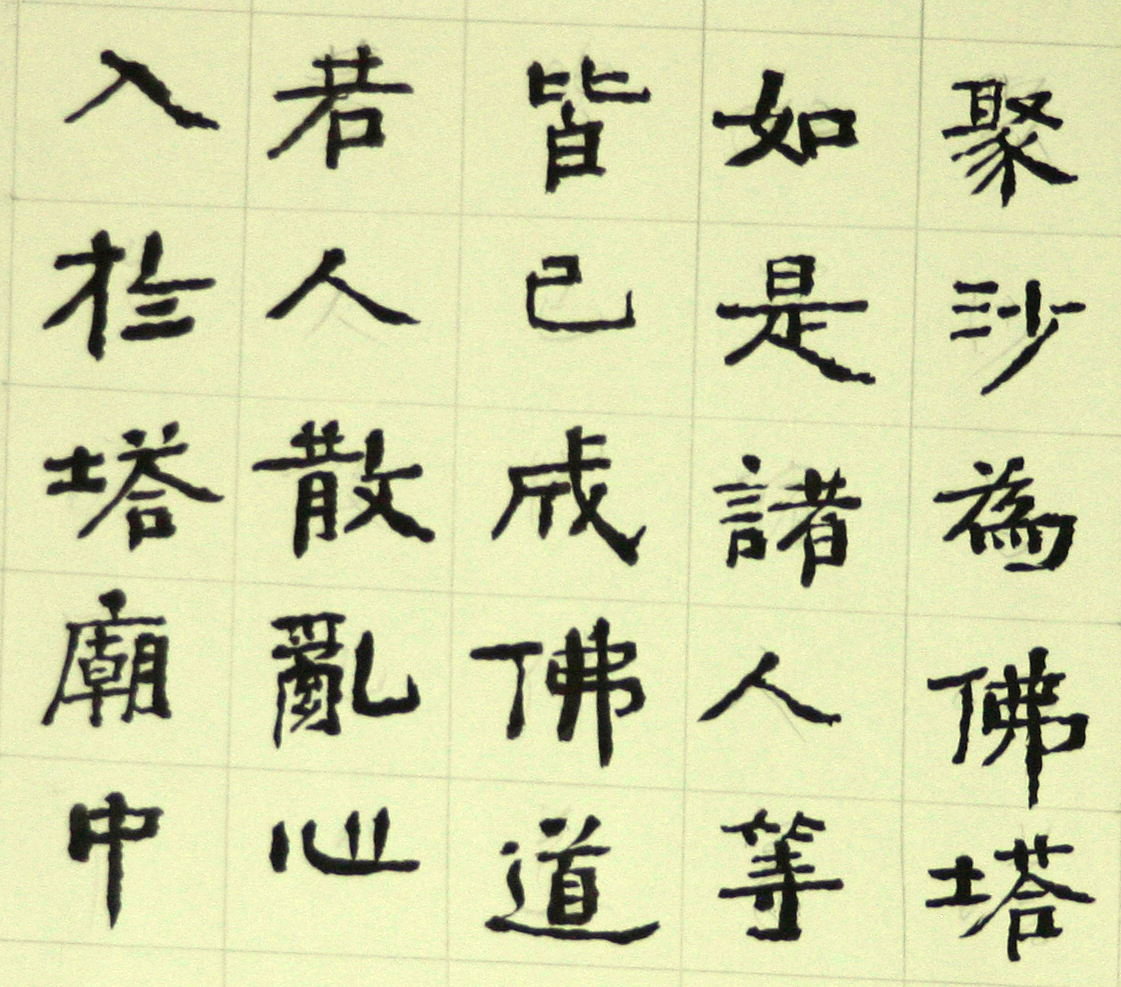 聚沙為佛塔
如是諸人等
皆已成佛道
若人散亂心
入於塔廟中